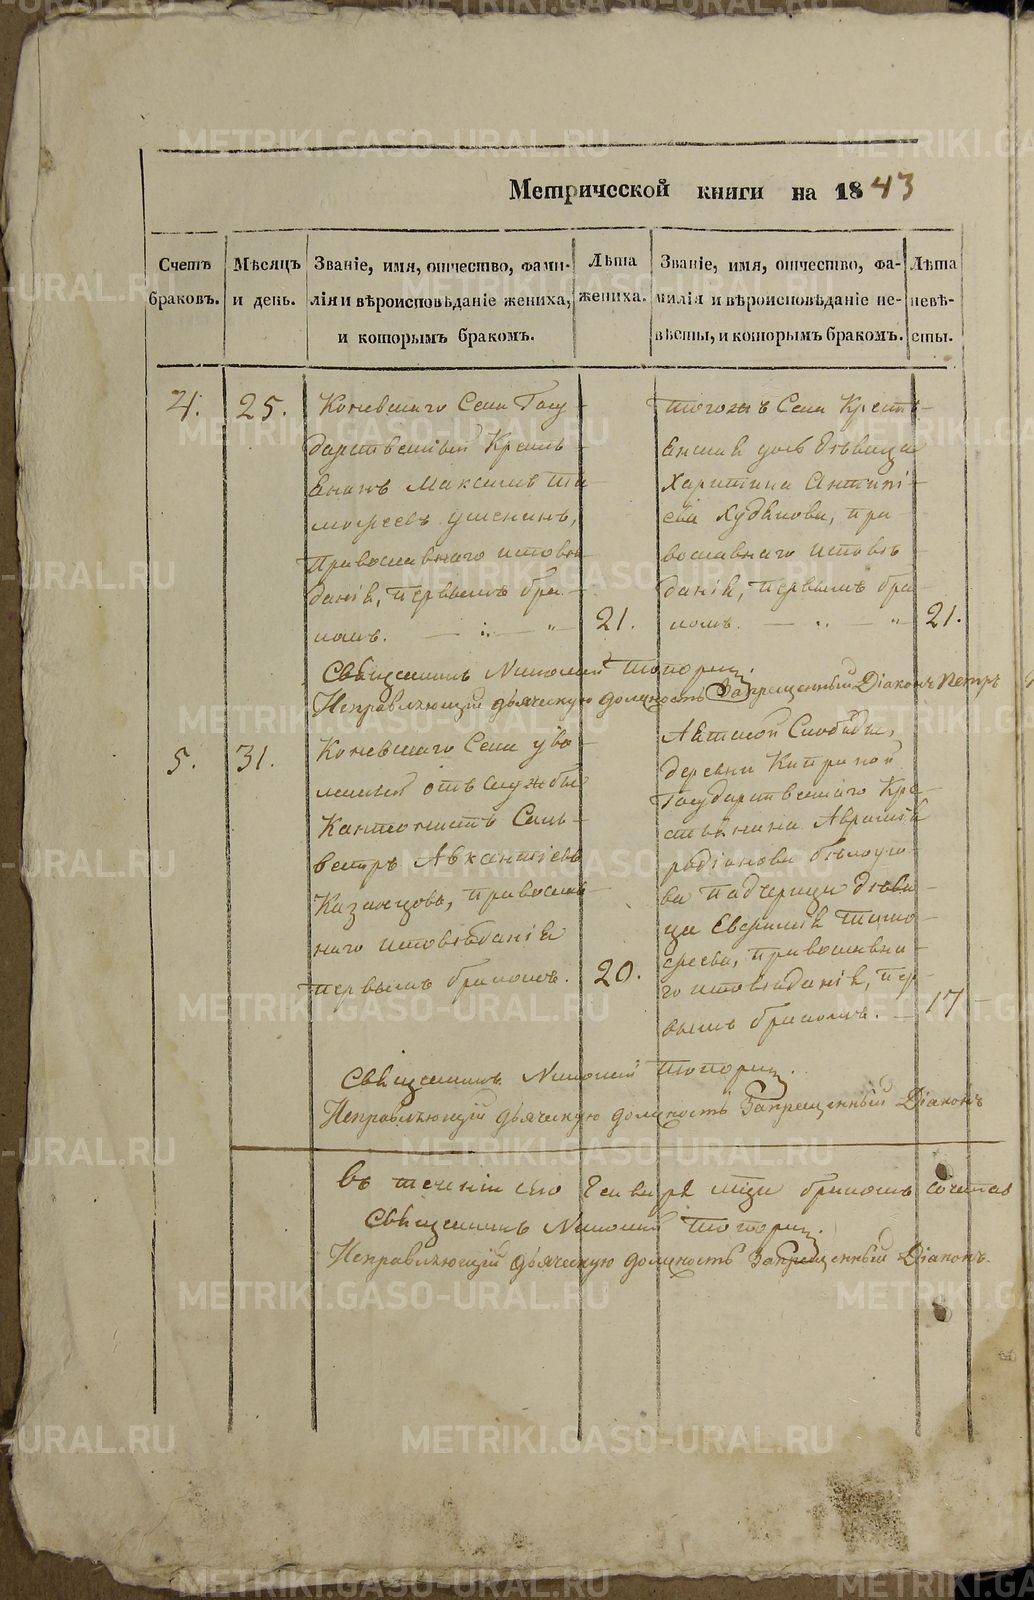 Метрической книги на 1843
Счетъ браковъ.
Мѣсяцъ и день.
Званіе, имя, отчество, фами-
лія и вѣроисповѣданіе жениха,
и которымъ бракомъ.
Лѣта
жениха.
Званіе, имя, отчество, фа-
милія и вѣроисповѣданіе не-
вѣсты, и которымъ бракомъ.
Лѣта
невѣ-
сты.
4.
25.
Коневскаго Села Госу-
дарственный Кресть-
янинъ Максимъ Ти-
мофеевъ
Православнаго исповѣ-
данія, первымъ бра-
комъ.
21.
тогожъ Села Кресть-
янская дочь дѣвица
Харитина Антипі-
ева Худякова, пра-
вославнаго исповѣ-
данія, первымъ бра-
комъ.
21.
Священникъ Николай Топорковъ.
Исправляющій дьяческую должность Запрещенный Діаконъ Петръ
5.
31.
Коневскаго Села уво-
ленный отъ службы
Кантонистъ Силь-
вестръ
Казанцовъ, православ-
наго исповѣданія
первымъ бракомъ.
20.
Аятской Слободы,
деревни Киприной
Государственнаго Кре-
стьянина
родіонова Бѣлоусо-
ва падчерица дѣви-
ца Тимо-
феева, православна-
го исповѣданія, пер-
вымъ бракомъ.
17
Священникъ Николай Топорковъ.
Исправляющій дьяческую должность Запрещенный Діаконъ
Въ теченіи сего Генваря мѣсяца бракомъ сочетав
Священникъ Николай Топорковъ.
Исправляющій дьяческую должность Запрещенный Діаконъ.
METRIKI.GASO-URAL.RU